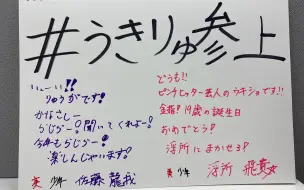 #うきりゅ参上
いぇーい!!
りゅうがです!
かなこしー
らじらー!聞いてくれよー!
今日もらじらー!
楽しんじゃいます!
美 少年 佐藤龍我
どうも!!
ピンチヒッター芸人のウキショです!!
金指!19歳の誕生日
おめでとう!
浮所にまかせろ!
美 少年 浮所 飛貴